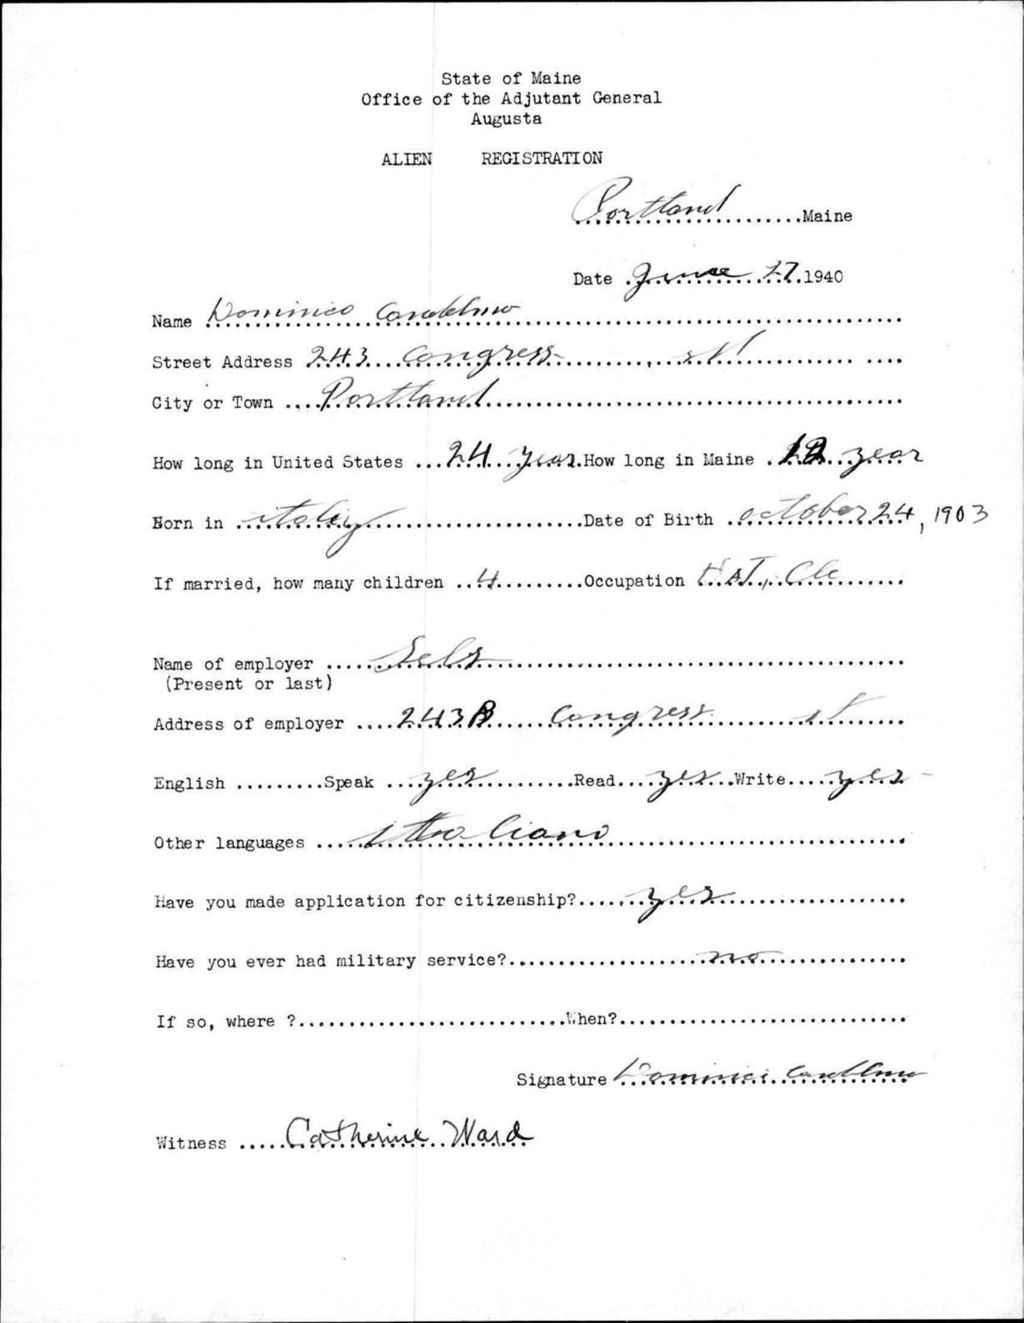 State of Maine
Office of the Adjutant General
Augusta
ALIEN REGISTRATION
Portland Maine
Date June 27 1940
Name Dominico
Street Address 243 Congress St
City or Town Portland
How long in United States 24 year How long in Maine 12 year
Born in italy Date of Birth october 24, 1903
If married, how many children 4 Occupation HAT, Cle
Name of employer Self
(Present or last)
Address of employer 243B Congress st
English Speak yes Read yes Write yes
Other languages italiano
Have you made application for citizenship? yes
Have you ever had military service? no
If so, where ? When?
Signature
Witness Catherine Ward